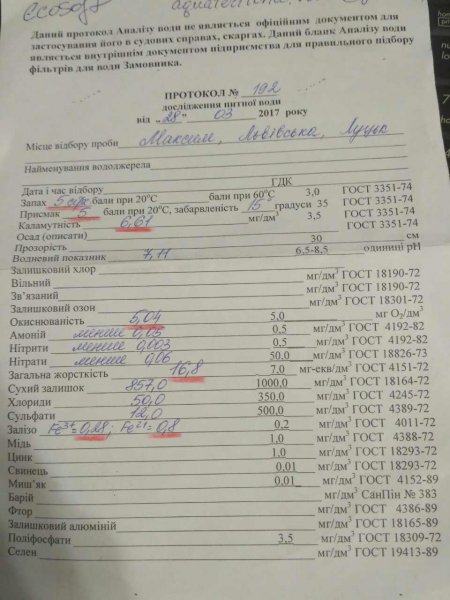 ecosoft
Даний протокол Аналізу води не являється офіційним документом для
застосування його в судових справах, скаргах. Даний бланк Аналізу води
являється внутрішнім документом підприємства для правильного підбору
фільтрів для води Замовника.
ПРОТОКОЛ № 192
дослідження питної води
від „28" 03 2017 року
Місце відбору проби Максим, Львівська, Луцьк
Найменування вододжерела
Дата і час відбору ГДК
Запах 5 бали при 20°С бали при 60°С 3,0 ГОСТ 3351-74
Присмак 5 бали при 20°С, забарвленість 15 градуси 35 ГОСТ 3351-74
Каламутність 6,61 мг/дм³ 3,5 ГОСТ 3351-74
Осад (описати) ГОСТ 3351-74
Прозорість 30 см
Водневий показник 7,11 6,5-8,5 одиниці рН
Залишковий хлор
Вільний мг/дм³ ГОСТ 18190-72
Зв'язаний мг/дм³ ГОСТ 18190-72
Залишковий озон мг/дм³ ГОСТ 18301-72
Окиснюваність 5,04 5,0 мг О₂/дм³
Амоній менше 0,05 0,5 мг/дм³ ГОСТ 4192-82
Нітрити менше 0,003 0,5 мг/дм³ ГОСТ 4192-82
Нітрати менше 0,06 50,0 мг/дм³ ГОСТ 18826-73
Загальна жорсткість 16,8 7,0 мг-екв/дм³ ГОСТ 4151-72
Сухий залишок 857,0 1000,0 мг/дм³ ГОСТ 18164-72
Хлориди 50,0 350,0 мг/дм³ ГОСТ 4245-72
Сульфати 12,0 500,0 мг/дм³ ГОСТ 4389-72
Залізо Fe³⁺ = 0,28; Fe²⁺ = 0,8 0,2 мг/дм³ ГОСТ 4011-72
Мідь 1,0 мг/дм³ ГОСТ 4388-72
Цинк 1,0 мг/дм³ ГОСТ 18293-72
Свинець 0,01 мг/дм³ ГОСТ 18293-72
Миш'як 0,01 мг/дм³ ГОСТ 4152-89
Барій мг/дм³ СанПін № 383
Фтор мг/дм³ ГОСТ 4386-89
Залишковий алюміній мг/дм³ ГОСТ 18165-89
Поліфосфати 3,5 мг/дм³ ГОСТ 18309-72
Селен мг/дм³ ГОСТ 19413-89